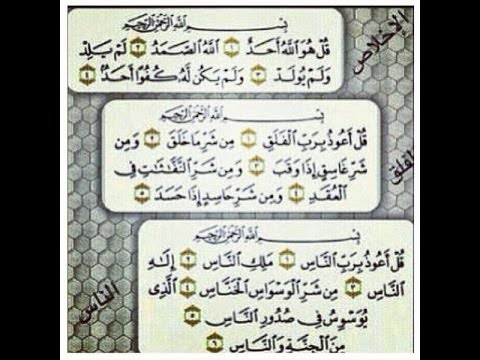 الإخلاص
بِسْمِ اللَّهِ الرَّحْمَٰنِ الرَّحِيمِ
قُلْ هُوَ اللَّهُ أَحَدٌ ١ اللَّهُ الصَّمَدُ ٢ لَمْ يَلِدْ
وَلَمْ يُولَدْ ٣ وَلَمْ يَكُن لَّهُ كُفُوًا أَحَدٌ ٤
الفلق
بِسْمِ اللَّهِ الرَّحْمَٰنِ الرَّحِيمِ
قُلْ أَعُوذُ بِرَبِّ الْفَلَقِ ١ مِن شَرِّ مَا خَلَقَ ٢ وَمِن
شَرِّ غَاسِقٍ إِذَا وَقَبَ ٣ وَمِن شَرِّ النَّفَّاثَاتِ فِي
الْعُقَدِ ٤ وَمِن شَرِّ حَاسِدٍ إِذَا حَسَدَ ٥
الناس
بِسْمِ اللَّهِ الرَّحْمَٰنِ الرَّحِيمِ
قُلْ أَعُوذُ بِرَبِّ النَّاسِ ١ مَلِكِ النَّاسِ ٢ إِلَٰهِ
النَّاسِ ٣ مِن شَرِّ الْوَسْوَاسِ الْخَنَّاسِ ٤ الَّذِي
يُوَسْوِسُ فِي صُدُورِ النَّاسِ ٥
مِنَ الْجِنَّةِ وَالنَّاسِ ٦